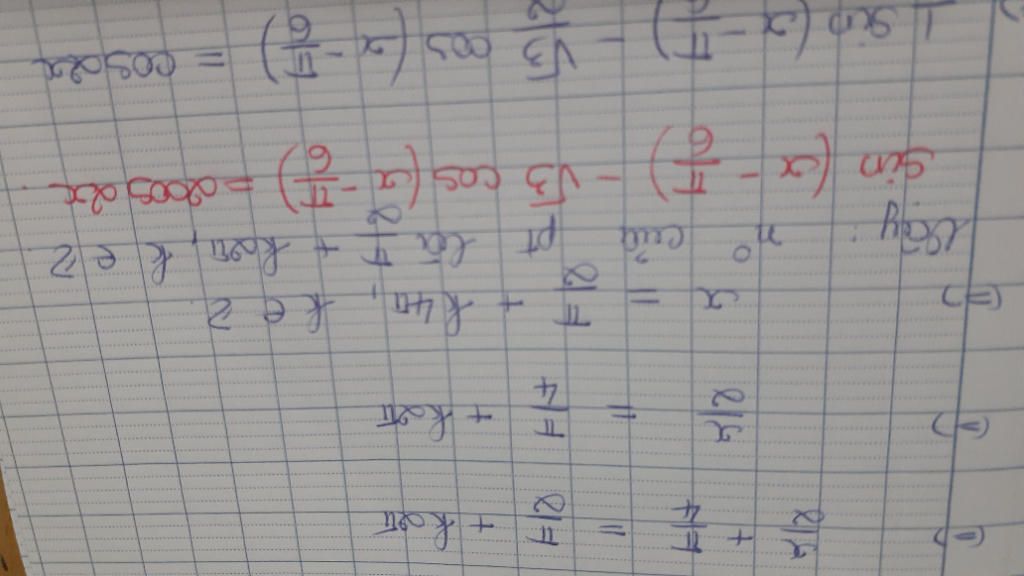 (=) x/2 + π/4 = π/2 + k2π
(=) x/2 = π/4 + k2π
(=) x = π/2 + k4π, k ∈ Z
Vậy: n° của pt là π/2 + k2π, k ∈ Z
sin (x - π/6) - √3 cos (x - π/6) = 2cos2x
1 sin (x - π/6) - √3/2 cos (x - π/6) = cos2x